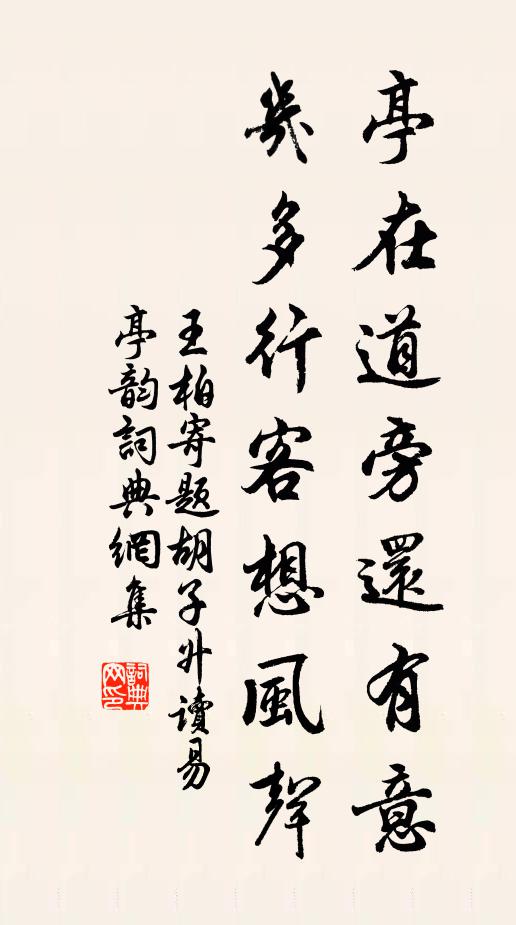 亭在道旁還有意
幾多行客想風聲
王柏寄題胡子升讀易
亭韵詞典網集
詞典網印